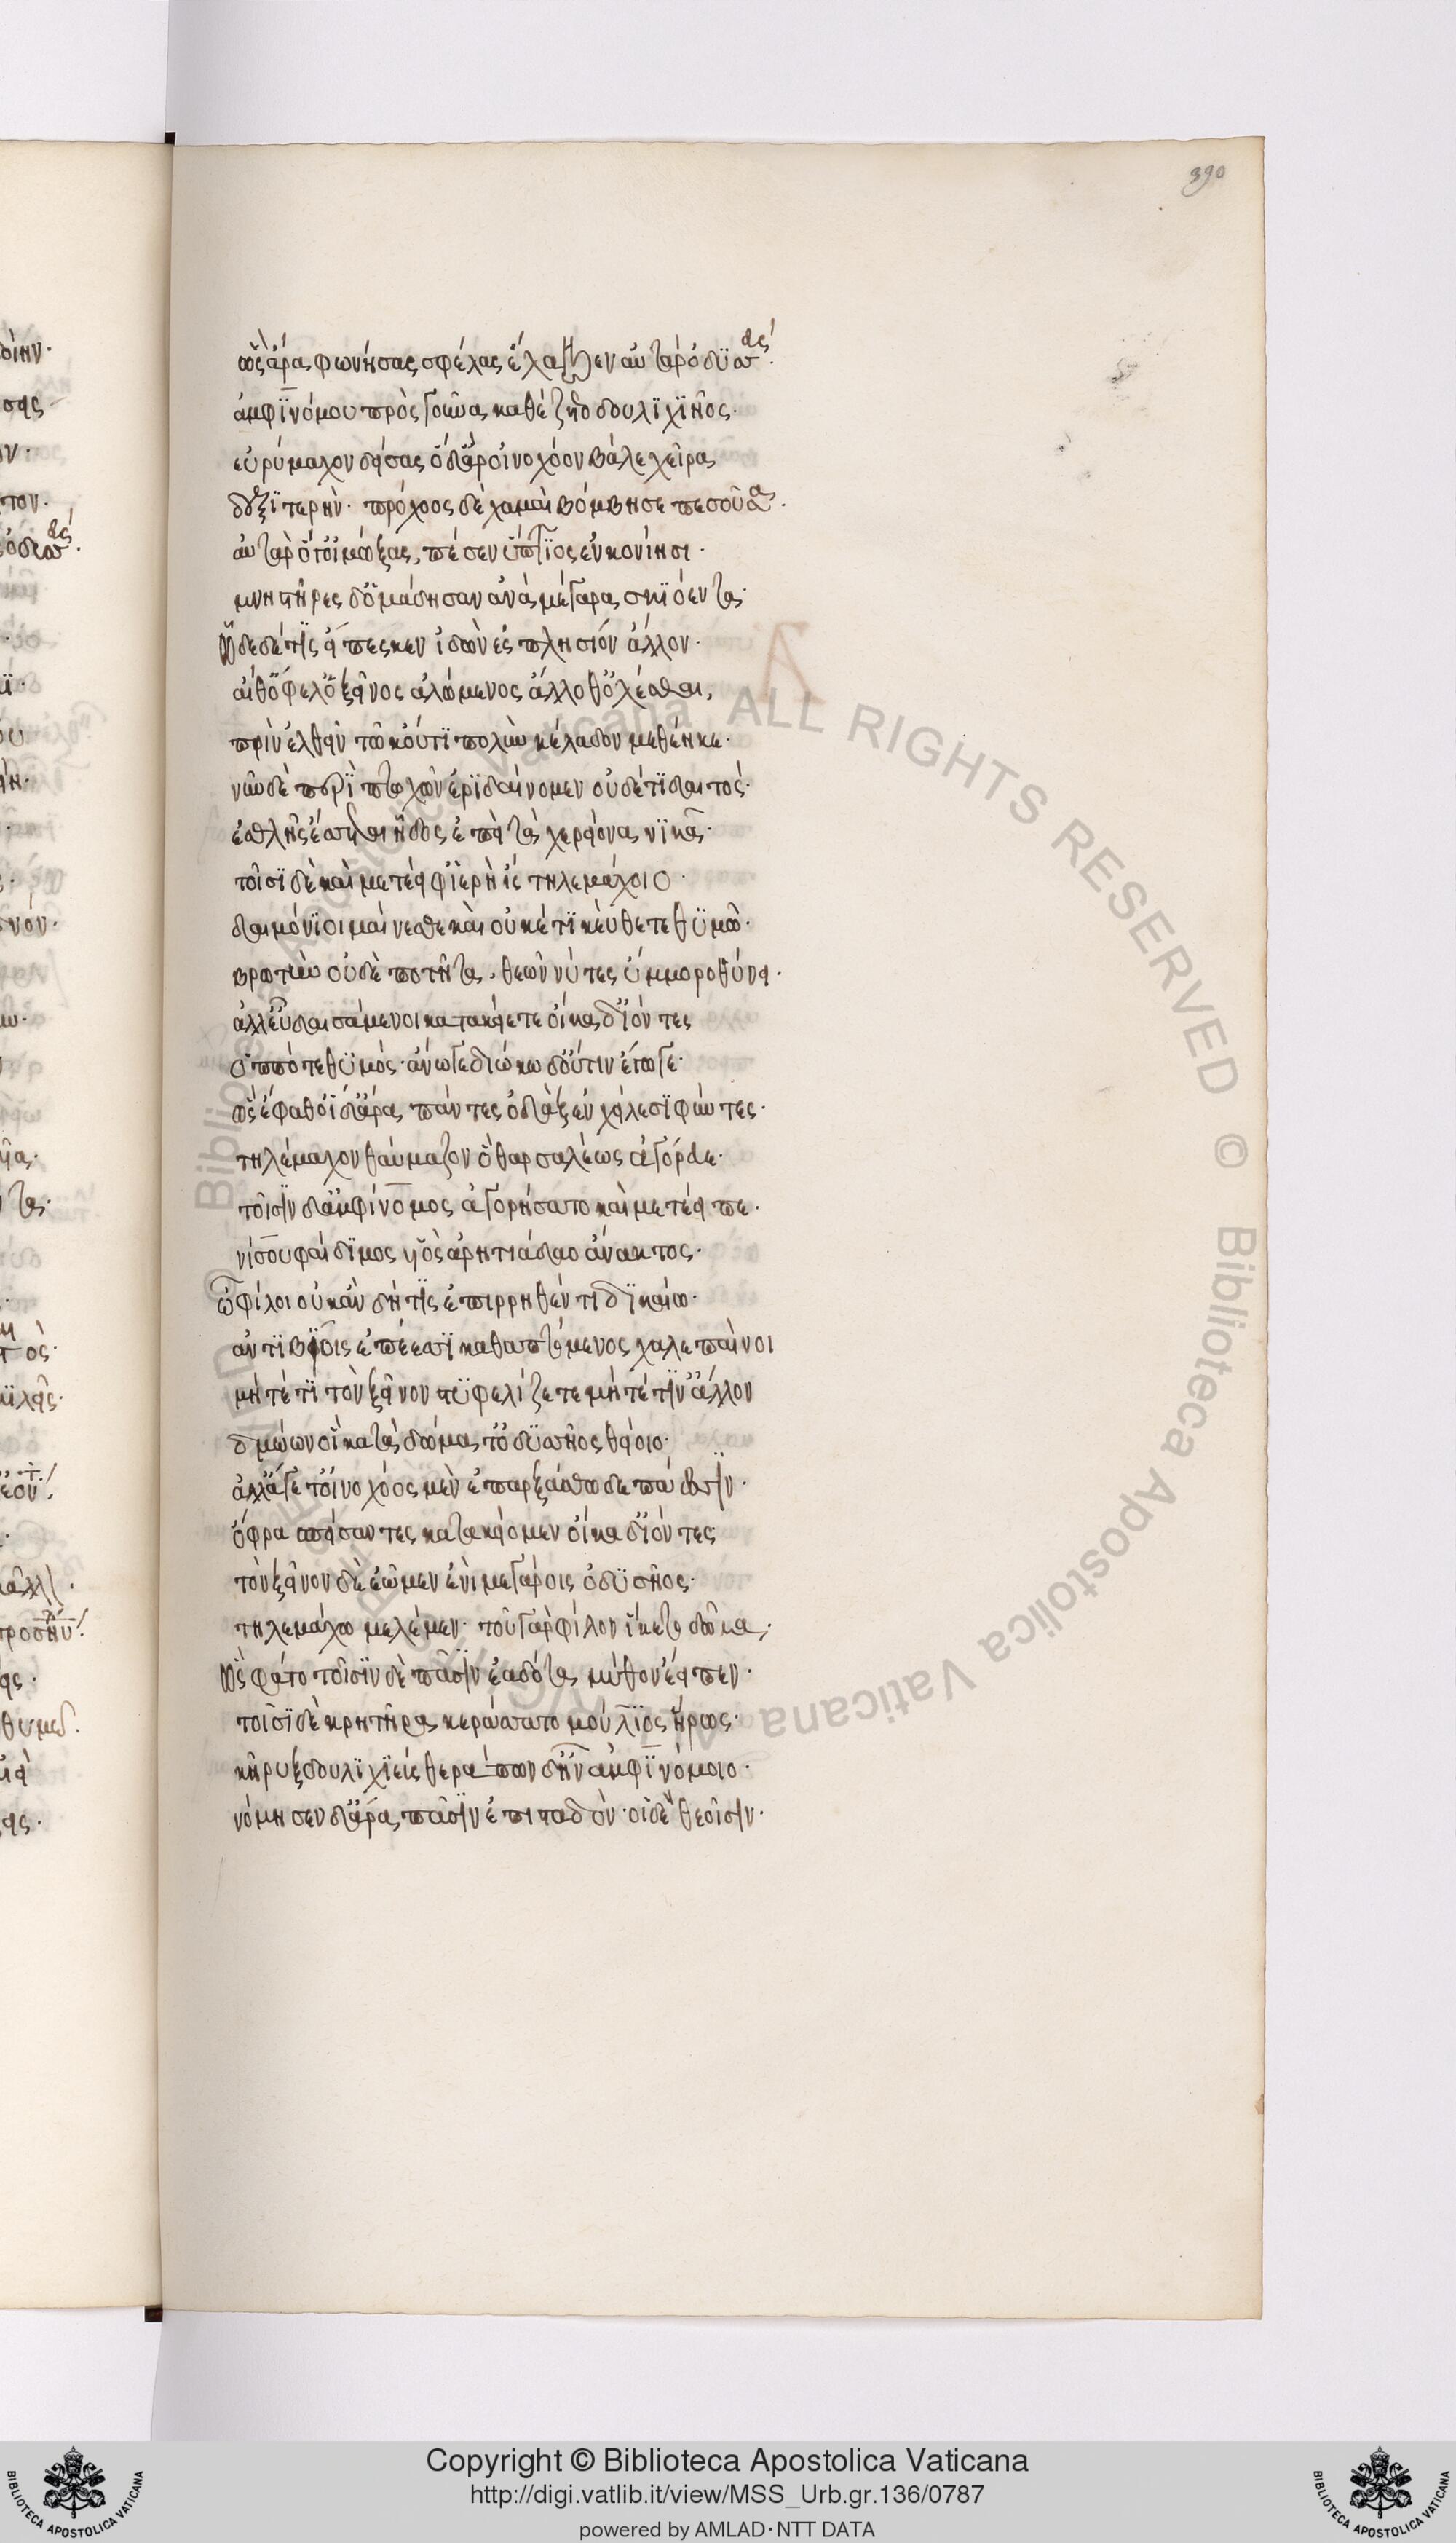 390
ὣς ἄρα φωνήσας σφέλας ἔλλαβεν αὐτὰρ ὀδυσσεύς.
ἀμφινόμου πρὸς γοῦνα καθέζετο δουλιχιῆος.
εὐρύμαχον δείσας ὁ δ' ἄρ οἰνοχόον βάλε χεῖρα
δεξιτερήν. πρόχοος δὲ χαμαὶ βόμβησε πεσοῦσα.
αὐτὰρ ὅγ' οἰμώξας, πέσεν ὕπτιος ἐν κονίησι.
μνηστῆρες δ' ὁμάδησαν ἀνὰ μέγαρα σκιόεντα.
ὧδε δέ τις εἴπεσκεν ἰδὼν ἐς πλησίον ἄλλον.
αἴθ' ὤφελ' ὁ ξεῖνος ἀλώμενος ἄλλοθ' ὀλέσθαι,
πρὶν ἐλθεῖν τῶ κ' οὔτι πολὺν κέλαδον μεθέηκε.
νῦν δὲ περὶ πτωχῶν ἐριδαίνομεν οὐδέ τι δαιτός.
ἐσθλῆς ἔσσεται ἦδος ἐπεὶ τὰ χερείονα νικᾶ.
τοῖσι δὲ καὶ μετέειφ' ἱερὴ ἲς τηλεμάχοιο.
δαιμόνιοι μαίνεσθε καὶ οὐκέτι κεύθετε θυμῶ.
βρωτὺν οὐδὲ ποτῆτα. θεῶν νύ τις ὔμμ' ὀροθύνει.
ἀλλ' εὖ δαισάμενοι κατακείετε οἴκαδ' ἰόντες
ὁππότε θυμός. ἄνωγε διώκω δ' οὔτιν' ἔγωγε.
ὣς ἔφαθ' οἱ δ' ἄρα πάντες ὀδὰξ ἐν χείλεσι φύντες.
τηλέμαχον θαύμαζον ὃ θαρσαλέως ἀγόρευε.
τοῖσιν δ' ἀμφίνομος ἀγορήσατο καὶ μετέειπε.
νίσου φαίδιμος υἱὸς ἀρητιάδαο ἄνακτος.
ὦ φίλοι οὐκ ἂν δή τις ἐπὶ ῥηθέντι δικαίω.
ἀντιβίοις ἐπέεσσι καθαπτόμενος χαλεπαίνοι
μήτέ τι τὸν ξεῖνον στυφελίζετε μήτέ τιν' ἄλλον
δμώων οἳ κατὰ δώματ' ὀδυσσῆος θείοιο.
ἀλλ' ἄγετ' οἰνοχόος μὲν ἐπαρξάσθω δεπάεσσιν.
ὄφρα σπείσαντες κατακείομεν οἴκαδ' ἰόντες
τὸν ξεῖνον δὲ ἐῶμεν ἐνὶ μεγάροις ὀδυσῆος.
τηλεμάχω μελέμεν. τοῦ γὰρ φίλον ἵκετο δῶμα.
ὣς φάτο τοῖσιν δὲ πᾶσιν ἑαδότα μῦθον ἔειπεν.
τοῖσι δὲ κρητῆρα κεράσσατο μούλιος ἥρως.
κῆρυξ δουλιχιεὺς θεράπων δ' ἦν ἀμφινόμοιο.
νόμησεν δ' ἄρα πᾶσιν ἐπισταδόν. οἱ δὲ θεοῖσιν.
Copyright © Biblioteca Apostolica Vaticana
http://digi.vatlib.it/view/MSS_Urb.gr.136/0787
powered by AMLAD·NTT DATA